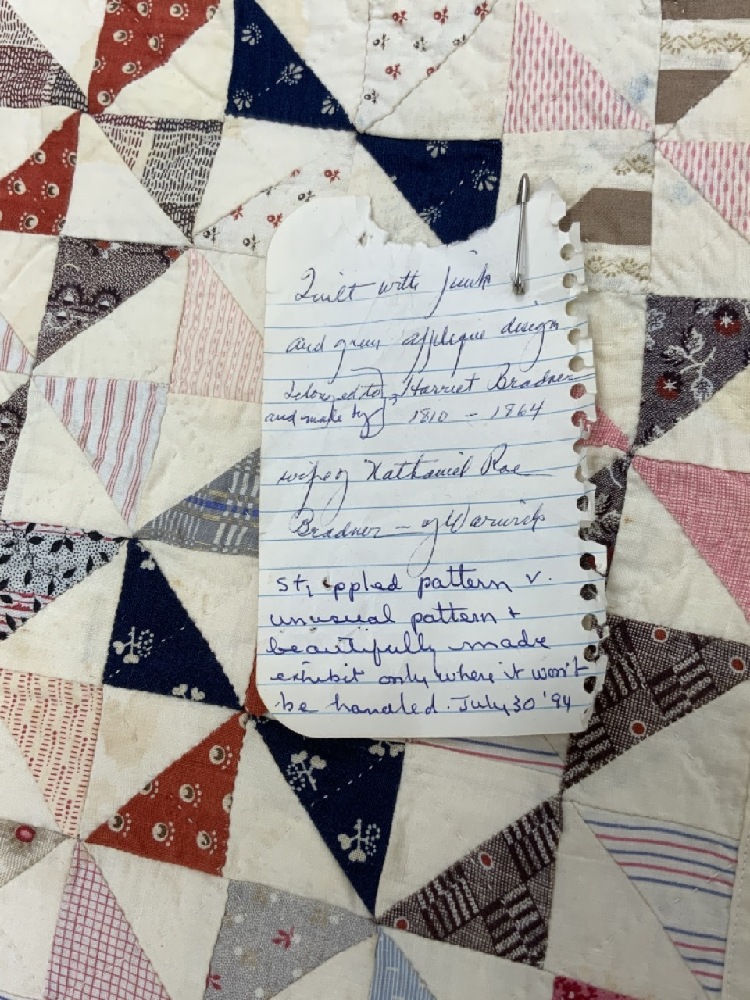 Quilt with pink
and green applique design
belonged to, Harriet Bradner
and made by 1810 - 1864
wife of Nathaniel Roe
Bradner - of Warwick
St, ppled pattern v.
unusual pattern +
beautifully made
exhibit only where it won't
be handled. July 30 '94